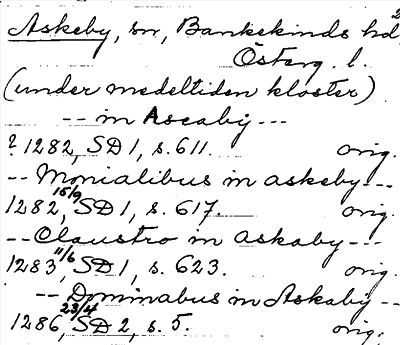 Askeby, sn, Bankekinds hd, 2
Österg. l.
(under medeltiden kloster)
-- in Ascaby ---
? 1282, SD 1, s. 611. orig.
-- Monialibus in askeby ---
1282 15/9, SD 1, s. 617. orig.
-- Claustro in askaby ---
1283 11/6, SD 1, s. 623. orig.
-- Dominabus in Askaby --
1286 23/4, SD 2, s. 5. orig.